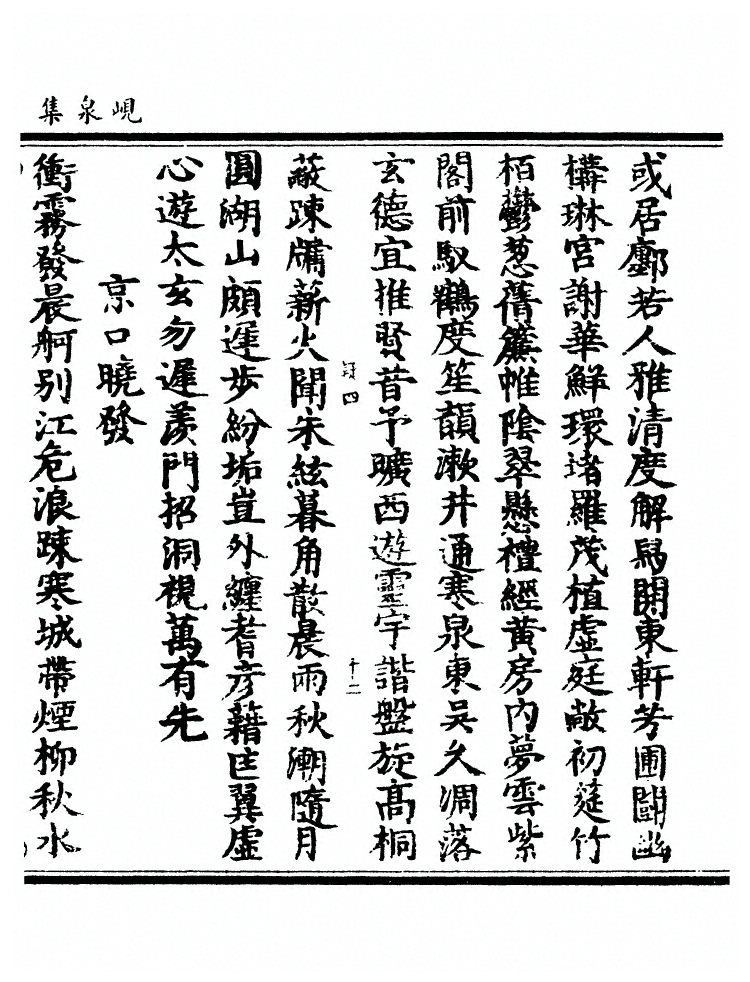 峴泉集
或居鄽若人雅清度解舄開東軒芳圃闢幽
構琳宮謝華鮮環堵羅茂植虛庭敞初筵竹
栢鬱葱蒨簾帷陰翠懸檀經黄房内夢雲紫
閣前馭鶴度笙韻漱井通寒泉東吳久凋落
玄德宜推賢昔予曠西遊靈宇諧盤旋高桐
疑四
十二
蔽踈牖薪火聞宋絃暮角散晨雨秋潮隨月
圓湖山頗遅步紛垢豈外纏耆彦藉匡翼虛
心遊太玄勿遲羨門招洞視萬有先
京口曉發
衝霧發晨舸别江危浪踈寒城帶煙柳秋水